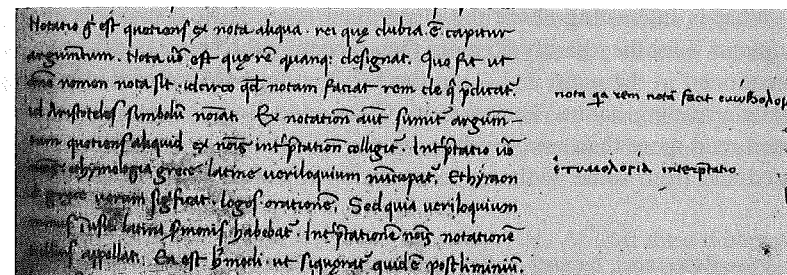 Notatio gͥ est quotiens ex nota aliqua · rei quę dubia ē capitur
argumntum. Nota ṽo est quę rē quanq; designat. Quo fit ut
omē nomen nota sit · idcirco qd̄ notam faciat rem de qͣ p̄dicat᷑.
id Aristoteles simbolū noīat. Ex notation̄ aūt sumit᷑ argum̄-
tum quotiens aliquid ex noīs int᷑p̄tation̄ colligit᷑. Int᷑p̄tatio ṽo
noīs · ethymologia grece · latine ueriloquium nūcupat᷑. Ethymon
grece uerum sigficat · logos orationē. Sed quia ueriloquium
minus ī usu latini s̄monis habebat᷑. Int᷑p̄tationē noīs notationē
tullius appellat. Ea est h᷑modi · ut si quęrat᷑ quid ē postliminiū.
nota qa rem notā facit συμβολον
ἐτυμολογία interp̄tatio